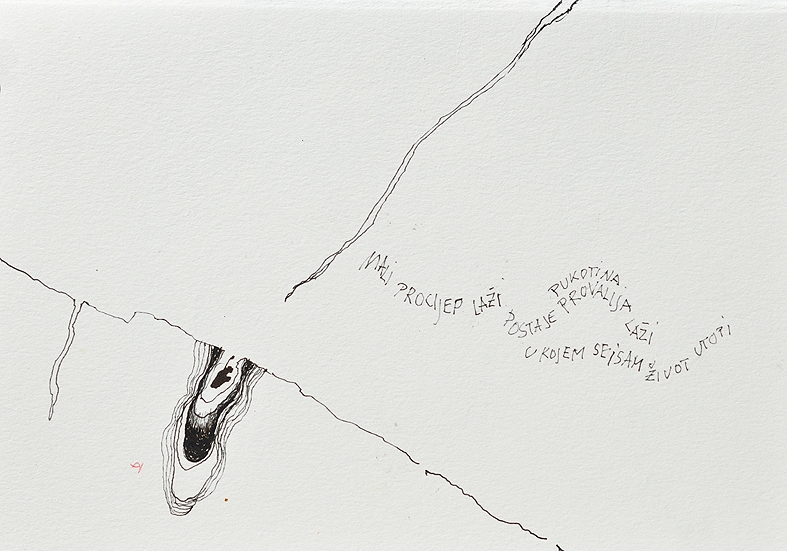 MALI PROCIJEP LAŽI
POSTAJE PROVALIJA
PUKOTINA
LAŽI
U KOJEM SE I SAM ŽIVOT UTOPI